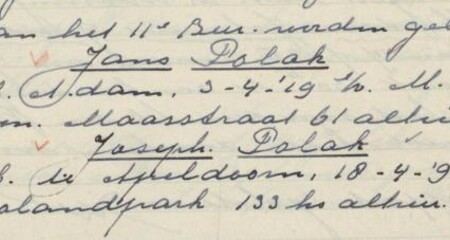 an het 11e Bur. worden gel
Jans Polak
A.dam, 3-4-'19 s/v. M.
Maasstraat 61 alhi
Joseph. Polak
te Apeldoorn, 18-4-'9
olandpark 133 hs alhier.